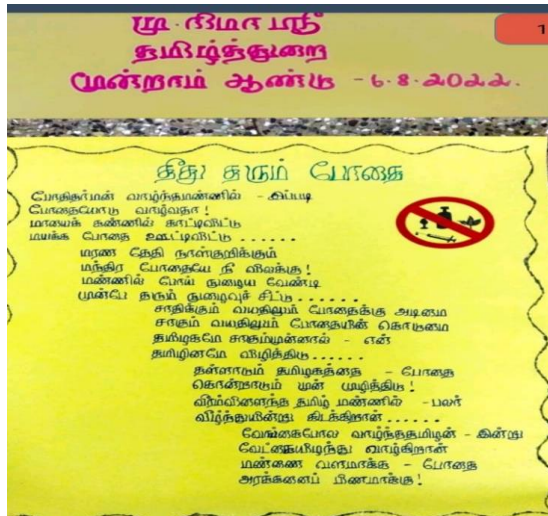 1
மு. திமா ஸ்ரீ
தமிழ்த்துறை
மூன்றாம் ஆண்டு - 6.8.2022.
தீது தரும் போதை
போதிதர்மன் வாழ்ந்தமண்ணில் - இப்படி
போதையோடு வாழ்வதா!
மாயைக் கண்ணில் காட்டிவிட்டு
மயக்க போதை ஊட்டிவிட்டு ......
மரண தேதி நாள்குறிக்கும்
மந்திர போதையே நீ விலக்கு!
மண்ணில் போய் நுழைய வேண்டி
முன்பே தரும் நுழைவுச் சீட்டு ......
சாதிக்கும் வயதிலும் போதைக்கு அடிமை
சாகும் வயதிலும் போதையின் கொடுமை
தமிழகமே சாகும்முன்னால் - என்
தமிழினமே விழித்திடு ......
தள்ளாடும் தமிழகத்தை - போதை
கொன்றாடும் முன் முழித்திடு!
வீரம்விளைந்த தமிழ் மண்ணில் - பலர்
வீழ்ந்துயின்று கிடக்கிறான் ......
வேங்கைபோல வாழ்ந்ததமிழன் - இன்று
வேட்கையிழந்து வாழ்கிறான்
மண்ணை வளமாக்க - போதை
அரக்கனைப் பிணமாக்கு!